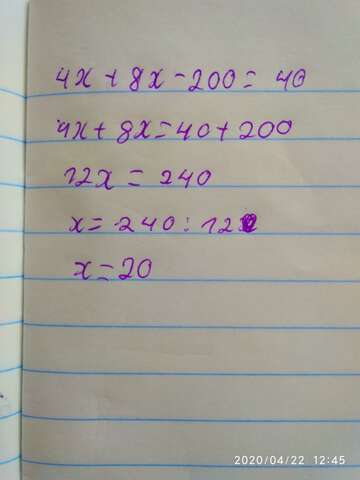 4x + 8x - 200 = 40
4x + 8x = 40 + 200
12x = 240
x = 240 : 12
x = 20
2020/04/22 12:45